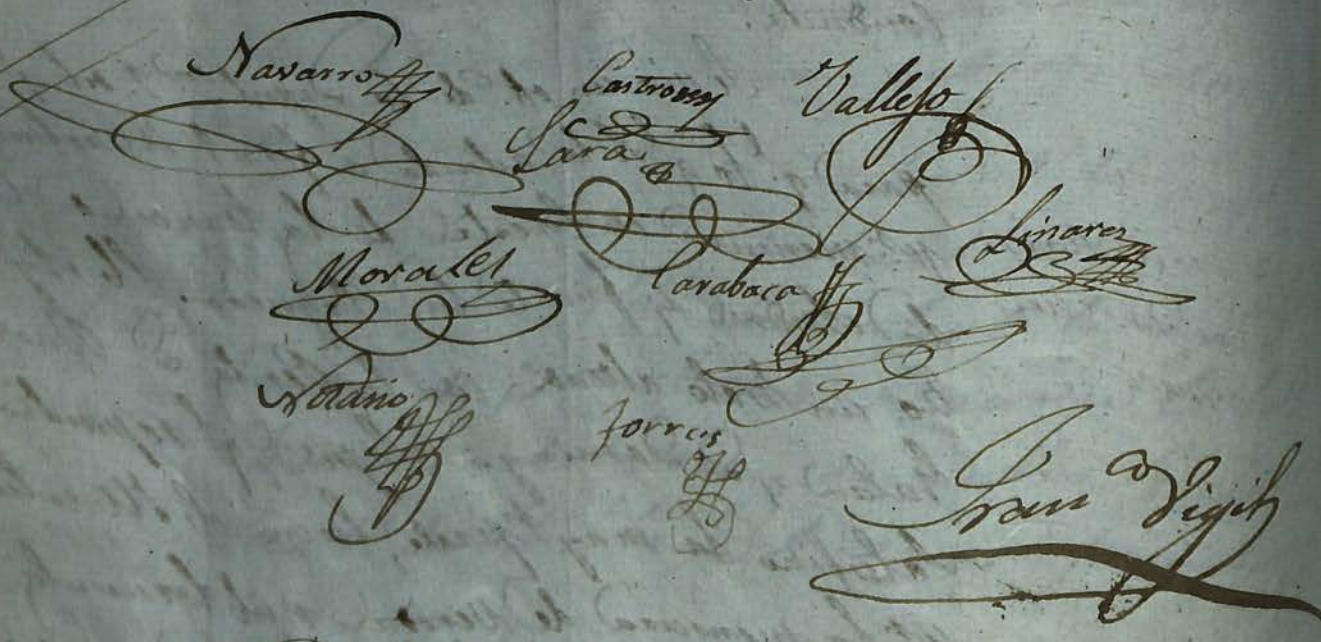 Navarro
Castro
Vallejo
Lara
Linares
Morales
Carabaca
Notario
Torres
Fran co Vigil